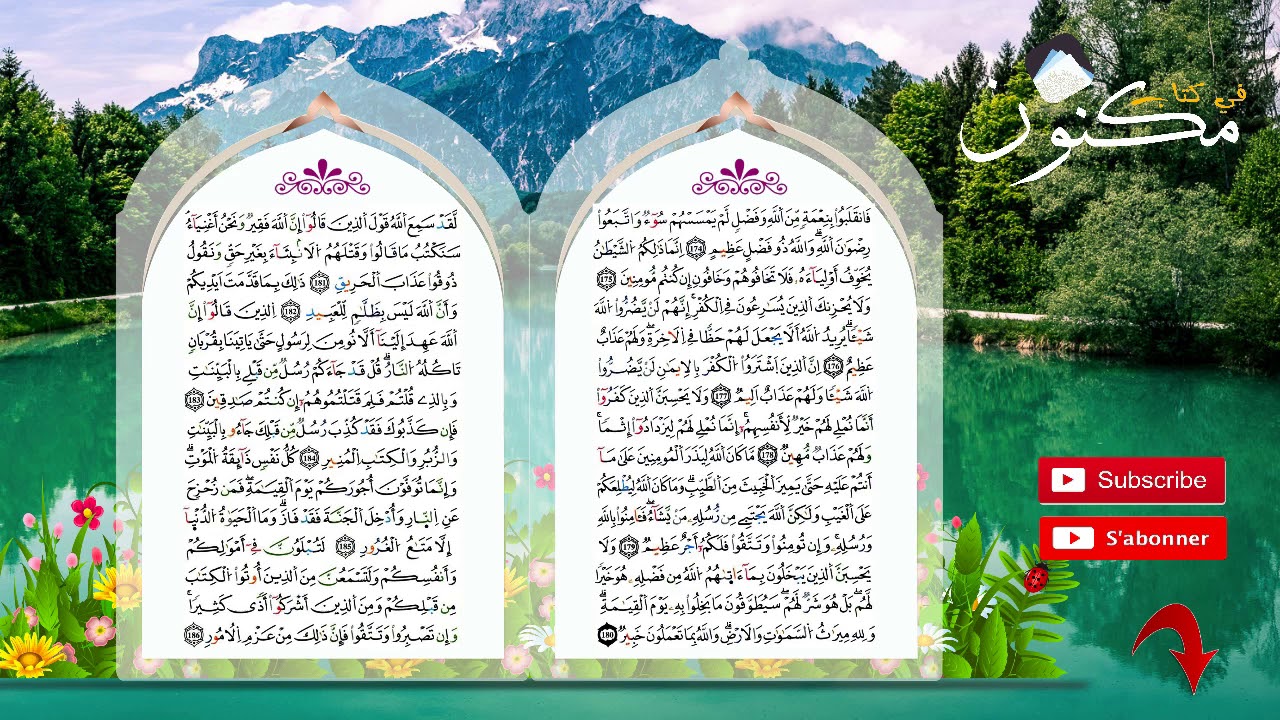 في كتاب
مكنون
فَانقَلَبُواْ بِنِعْمَةٍ مِّنَ اَللَّهِ وَفَضْلٍ لَّمْ يَمْسَسْهُمْ سُوٓءٌ وَاتَّبَعُواْ
رِضْوَٰنَ اَللَّهِۗ وَاللَّهُ ذُو فَضْلٍ عَظِيمٍ 174 اِنَّمَا ذَٰلِكُمُ اُلشَّيْطَٰنُ
يُخَوِّفُ أَوْلِيَآءَهُۥ فَلَا تَخَافُوهُمْ وَخَافُونِ إِن كُنتُم مُّومِنِينَ 175
وَلَا يُحْزِنكَ اَلذِينَ يُسَٰرِعُونَ فِے اِلْكُفْرِۖ إِنَّهُمْ لَنْ يَّضُرُّواْ اُللَّهَ
شَيْـٔاًۗ يُرِيدُ اُللَّهُ أَلَّا يَجْعَلَ لَهُمْ حَظّاً فِے اِلَاخِرَةِۖ وَلَهُمْ عَذَابٌ
عَظِيمٌ 176 اِنَّ اَلذِينَ اَشْتَرَوُاْ اُلْكُفْرَ بِالِايمَٰنِ لَنْ يَّضُرُّواْ
اُللَّهَ شَيْـٔاً وَلَهُمْ عَذَابٌ اَلِيمٌ 177 وَلَا يَحْسِبَنَّ اَلذِينَ كَفَرُوٓاْ
أَنَّمَا نُمْلِے لَهُمْ خَيْرٌ لِّأَنفُسِهِمُۥٓۖ إِنَّمَا نُمْلِے لَهُمْ لِيَزْدَادُوٓاْ إِثْماًۖ
وَلَهُمْ عَذَابٌ مُّهِينٌ 178 مَّا كَانَ اَللَّهُ لِيَذَرَ اَلْمُومِنِينَ عَلَىٰ مَآ
أَنتُمْ عَلَيْهِ حَتَّىٰ يَمِيزَ اَلْخَبِيثَ مِنَ اَلطَّيِّبِۗ وَمَا كَانَ اَللَّهُ لِيُطْلِعَكُمْ
عَلَى اَلْغَيْبِ وَلَٰكِنَّ اَللَّهَ يَجْتَبِے مِن رُّسُلِهِۦ مَنْ يَّشَآءُۖ فَـَٔامِنُواْ بِاللَّهِ
وَرُسُلِهِۦۖ وَإِن تُومِنُواْ وَتَتَّقُواْ فَلَكُمُۥٓ أَجْرٌ عَظِيمٌ 179 وَلَا
يَحْسِبَنَّ اَلذِينَ يَبْخَلُونَ بِمَآ ءَاتَىٰهُمُ اُللَّهُ مِن فَضْلِهِۦ هُوَ خَيْراً
لَّهُمۖ بَلْ هُوَ شَرٌّ لَّهُمْۖ سَيُطَوَّقُونَ مَا بَخِلُواْ بِهِۦ يَوْمَ اَلْقِيَٰمَةِۗ
وَلِلهِ مِيرَٰثُ اُلسَّمَٰوَٰتِ وَالَارْضِۗ وَاللَّهُ بِمَا تَعْمَلُونَ خَبِيرٌ 180
لَّقَدْ سَمِعَ اَللَّهُ قَوْلَ اَلذِينَ قَالُوٓاْ إِنَّ اَللَّهَ فَقِيرٌ وَنَحْنُ أَغْنِيَآءُ
سَنَكْتُبُ مَا قَالُواْ وَقَتْلَهُمُ اُلَانۢبِئَآءَ بِغَيْرِ حَقٍّ وَنَقُولُ
ذُوقُواْ عَذَابَ اَلْحَرِيقِ 181 ذَٰلِكَ بِمَا قَدَّمَتَ اَيْدِيكُمْ
وَأَنَّ اَللَّهَ لَيْسَ بِظَلَّٰمٍ لِّلْعَبِيدِ 182 اِلذِينَ قَالُوٓاْ إِنَّ
اَللَّهَ عَهِدَ إِلَيْنَآ أَلَّا نُومِنَ لِرَسُولٍ حَتَّىٰ يَاتِيَنَا بِقُرْبَانٍ
تَاكُلُهُ اُلنَّارُۗ قُلْ قَدْ جَآءَكُمْ رُسُلٌ مِّن قَبْلِے بِالْبَيِّنَٰتِ
وَبِالذِے قُلْتُمْ فَلِمَ قَتَلْتُمُوهُمُۥٓ إِن كُنتُمْ صَٰدِقِينَ 183
فَإِن كَذَّبُوكَ فَقَدْ كُذِّبَ رُسُلٌ مِّن قَبْلِكَ جَآءُو بِالْبَيِّنَٰتِ
وَالزُّبُرِ وَالْكِتَٰبِ اِلْمُنِيرِ 184 كُلُّ نَفْسٍ ذَآئِقَةُ اُلْمَوْتِۗ
وَإِنَّمَا تُوَفَّوْنَ أُجُورَكُمْ يَوْمَ اَلْقِيَٰمَةِۖ فَمَن زُحْزِحَ
عَنِ اِلنّ۪ارِ وَأُدْخِلَ اَلْجَنَّةَ فَقَدْ فَازَۖ وَمَا اَلْحَيَوٰةُ اُلدُّنْيَآ
إِلَّا مَتَٰعُ اُلْغُرُورِ 185 لَتُبْلَوُنَّ فِےٓ أَمْوَٰلِكُمْ
وَأَنفُسِكُمْ وَلَتَسْمَعُنَّ مِنَ اَلذِينَ أُوتُواْ اُلْكِتَٰبَ
مِن قَبْلِكُمْ وَمِنَ اَلذِينَ أَشْرَكُوٓاْ أَذىً كَثِيراًۖ
وَإِن تَصْبِرُواْ وَتَتَّقُواْ فَإِنَّ ذَٰلِكَ مِنْ عَزْمِ اِلُامُورِ 186
Subscribe
S'abonner